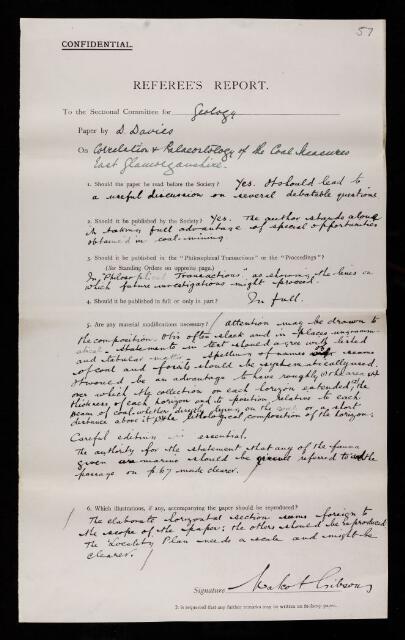 57
CONFIDENTIAL.
REFEREE'S REPORT.
To the Sectional Committee for Geology
Paper by D. Davies
On Correlation & Palaeontology of the Coal Measures
East Glamorganshire.
1. Should the paper be read before the Society? Yes. It should lead to
a useful discussion on several debatable questions
2. Should it be published by the Society? Yes. The author stands alone
in taking full advantage of special opportunities
obtained in coal-mining.
3. Should it be published in the "Philosophical Transactions" or the "Proceedings"?
(See Standing Orders on opposite page.)
In "Philosophical Transactions" as showing the lines on
which future investigations might proceed.
4. Should it be published in full or only in part? In full.
5. Are any material modifications necessary? Attention may be drawn to
the composition. It is often slack and in places ungramm-
atical. Statements in text should agree with listed
and tabular matter. Spelling of names of seams
of coal and fossils should be systematically used.
It would be an advantage to have roughly the area
over which the collection on each horizon extended, the
thickness of each horizon and its position relative to each
seam of coal, whether directly lying on the coal or a short
distance above it, & the lithological composition of the horizon.
Careful editing is essential.
The authority for the statement that any of the fauna
given are marine should be referred to and the
passage on p. 67 made clearer.
6. Which illustrations, if any, accompanying the paper should be reproduced?
The elaborate horizontal section seems foreign to
the scope of the paper; the others should be reproduced
The Locality Plan needs a scale and might be
clearer.
Signature Walcot Gibson
It is requested that any further remarks may be written on foolscap paper.